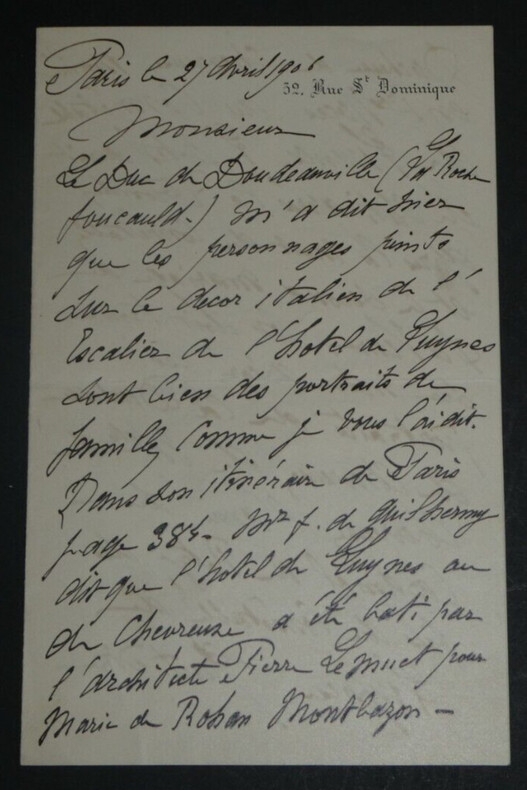 Paris le 27 Avril 1906
52. Rue St Dominique
Monsieur
Le Duc de Doudeauville (La Roche
foucauld.) m'a dit hier
que les personnages peints
sur le decor italien de l'
Escalier de l'hotel de Luynes
sont bien des portraits de
famille, comme je vous l'ai dit.
Dans son itinéraire de Paris
page 384- Mr f. de Guilhermy
dit que l'hotel de Luynes ou
de Chevreuse a été bati par
l'architecte Pierre Lemuet pour
Marie de Rohan Montbazon -